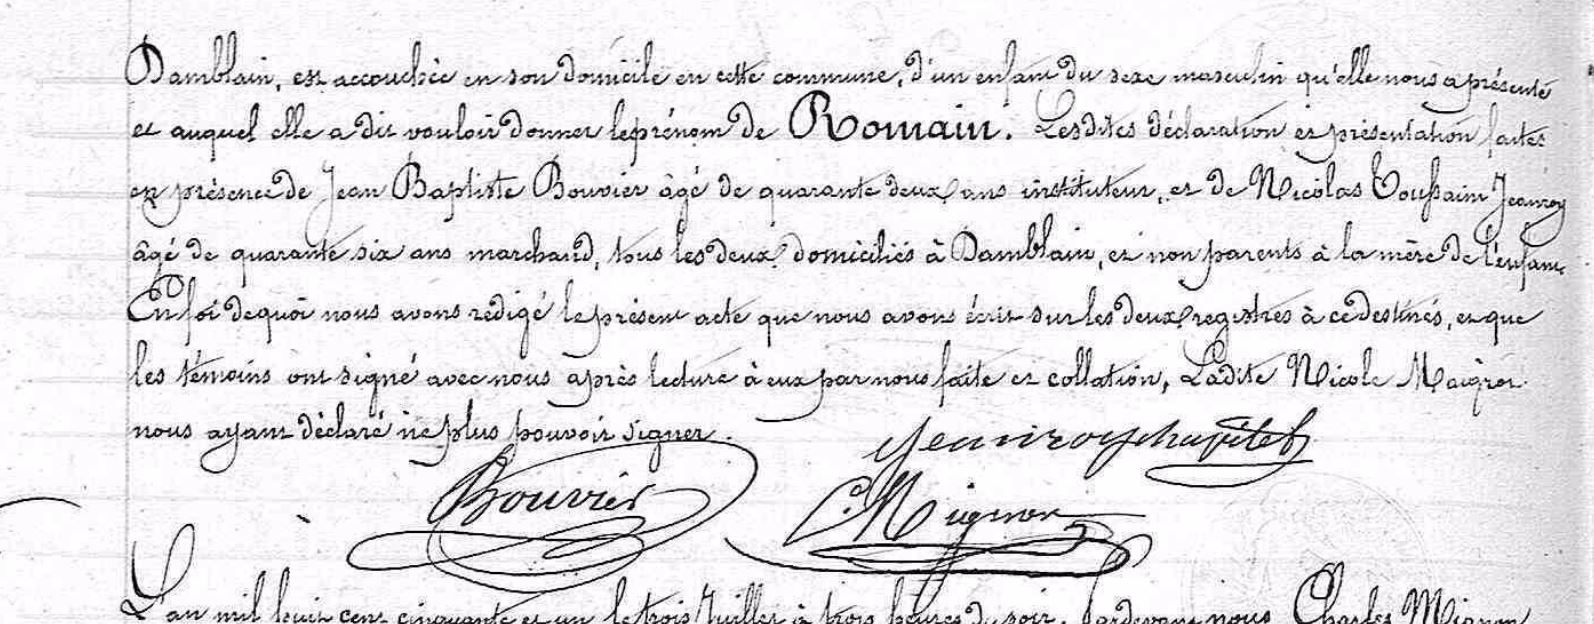 Damblain, est accouchée en son domicile en cette commune, d'un enfant du sexe masculin qu'elle nous a présenté
et auquel elle a dit vouloir donner le prénom de Romain. Lesdites déclaration et présentation faites
en présence de Jean Baptiste Bouvier âgé de quarante deux ans instituteur, et de Nicolas Toussaint Jeanroy
âgé de quarante six ans marchand, tous les deux domiciliés à Damblain, et non parents à la mère de l'enfant
En foi de quoi nous avons rédigé le présent acte que nous avons écrit sur les deux registres à ce destinés, et que
les témoins ont signé avec nous après lecture à eux par nous faite et collation, Ladite Nicole Maigrot
nous ayant déclaré ne plus pouvoir signer.
Jeanroy
Bouvier
C. Mignon
L'an mil huit cent cinquante et un le trois Juillet à trois heures du soir. Pardevant nous Charles Mignon